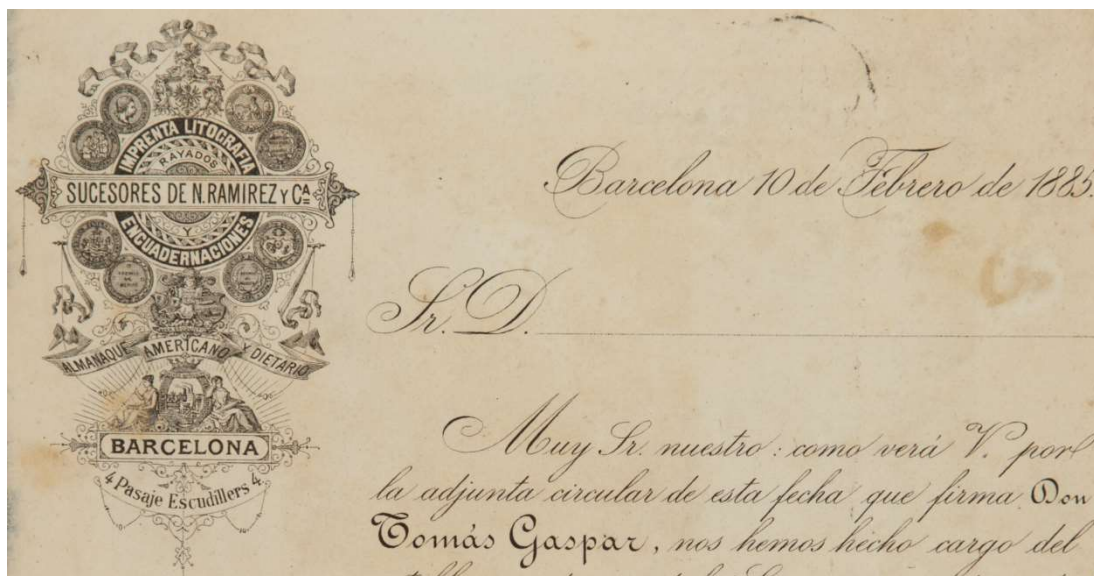 IMPRENTA LITOGRAFIA
RAYADOS
SUCESORES DE N. RAMIREZ Y Cª
Y
ENCUADERNACIONES
ALMANAQUE AMERICANO Y DIETARIO
BARCELONA
4 Pasaje Escudillers 4
Barcelona 10 de Febrero de 1885.
Sr. D.
Muy Sr. nuestro: como verá V. por
la adjunta circular de esta fecha que firma Don
Tomás Gaspar, nos hemos hecho cargo del